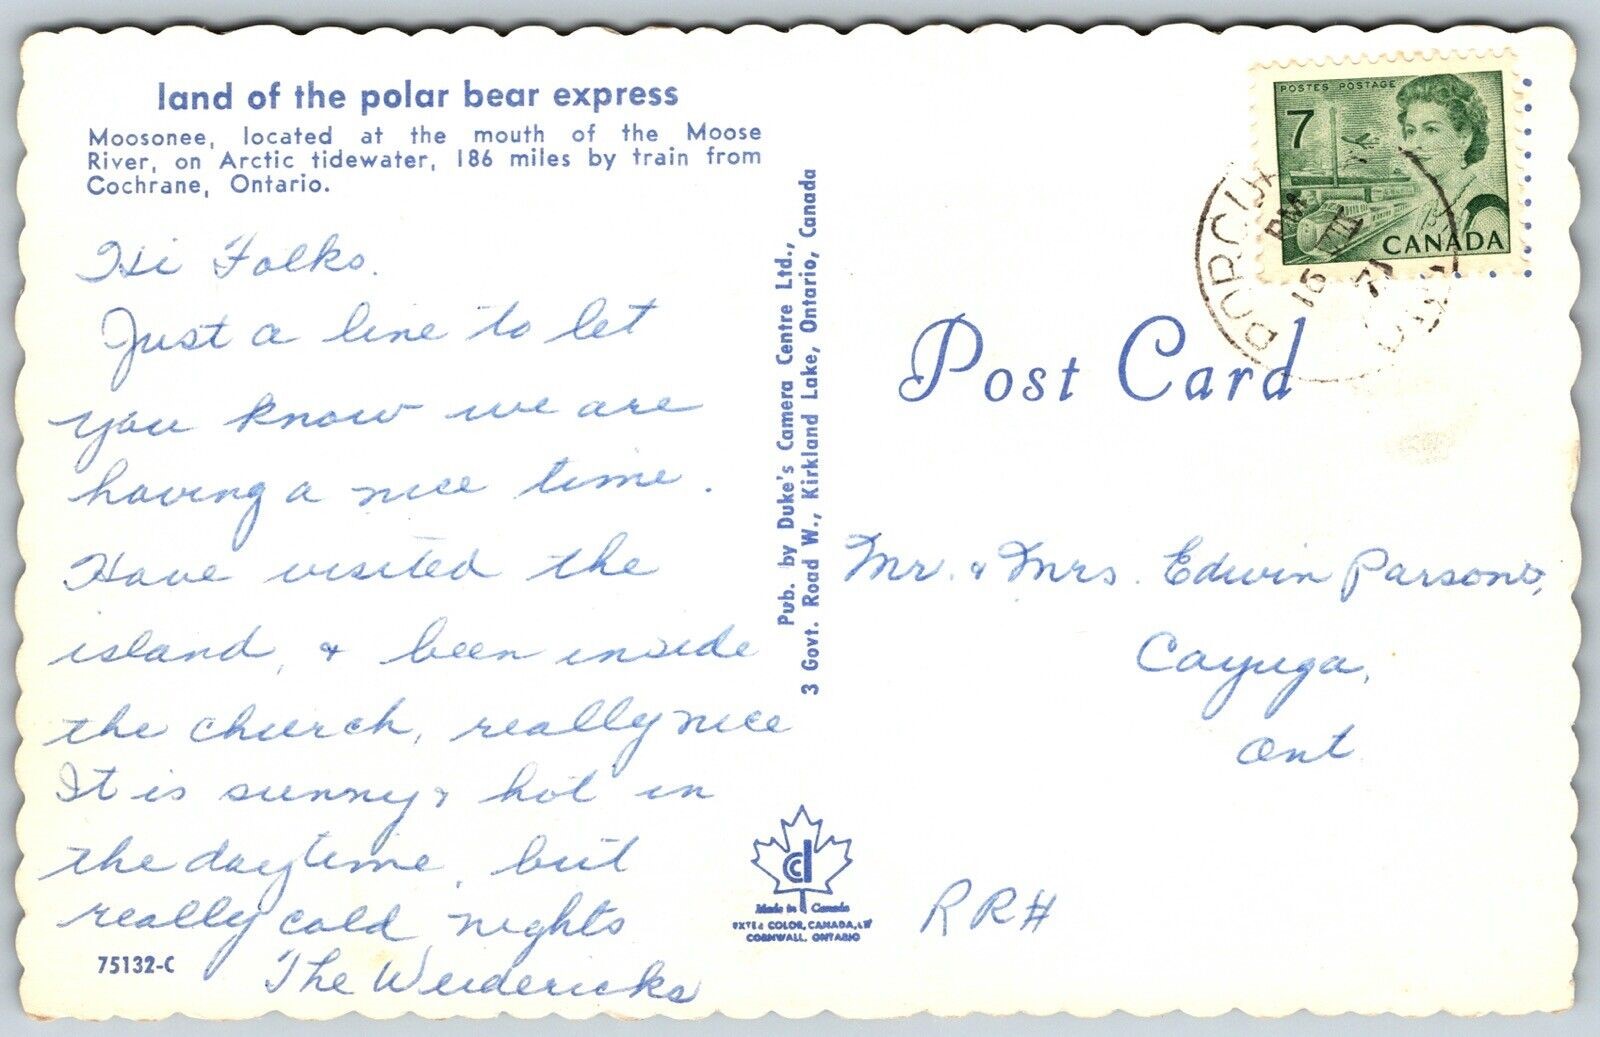 land of the polar bear express
Moosonee, located at the mouth of the Moose
River, on Arctic tidewater, 186 miles by train from
Cochrane, Ontario.
Hi Folks.
Just a line to let
you know we are
having a nice time.
Have visited the
island, & been inside
the church, really nice
It is sunny & hot in
the daytime, but
really cold nights
The Weidericks
75132-C
Pub. by Duke's Camera Centre Ltd.,
3 Govt. Road W., Kirkland Lake, Ontario, Canada
Made in Canada
COLOR, CANADA,
CORNWALL, ONTARIO
POSTES POSTAGE
7
CANADA
PM
16 VII
71
Post Card
Mr. & Mrs. Edwin Parsons,
Cayuga,
Ont
RR#